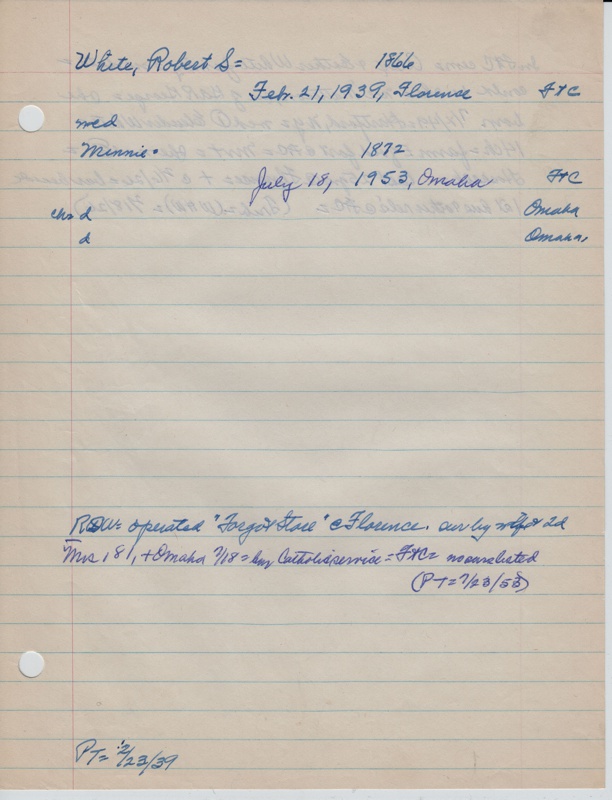 White, Robert S= 1866
Feb. 21, 1939, Florence FtC
med
Minnie. 1872
July 18, 1953, Omaha FtC
chs d Omaha
d Omaha,
RSW= operated "Forgot Store" @ Florence. sur by wf + 2d
Mrs 181, + Omaha 7/18 = bur Catholic service = FtC = no sur listed
(PT= 7/23/53)
PT= 2/23/39